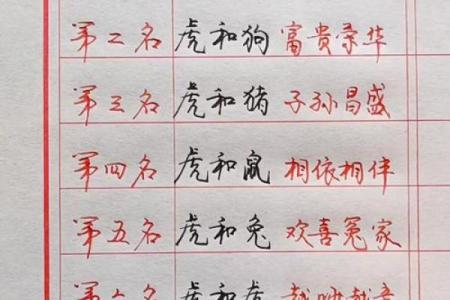 第二名 虎和狗 富贵荣华
第三名 虎和猪 子孙昌盛
第四名 虎和鼠 相依相伴
第五名 虎和兔 欢喜冤家
第六名 虎和虎